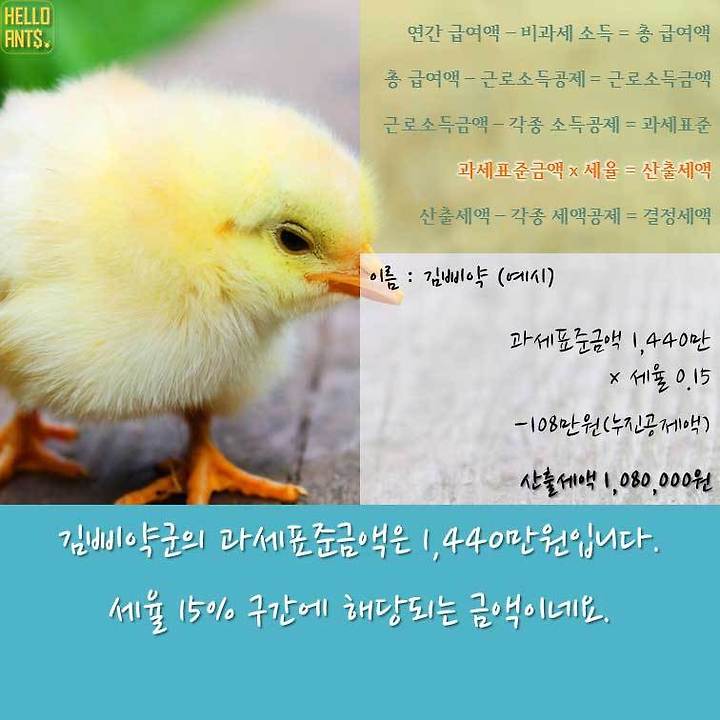 HELLO
ANT$.
연간 급여액 – 비과세 소득 = 총 급여액
총 급여액 – 근로소득공제 = 근로소득금액
근로소득금액 – 각종 소득공제 = 과세표준
과세표준금액 x 세율 = 산출세액
산출세액 – 각종 세액공제 = 결정세액
이름 : 김삐약 (예시)
과세표준금액 1,440만
x 세율 0.15
-108만원(누진공제액)
산출세액 1,080,000원
김삐약군의 과세표준금액은 1,440만원입니다.
세율 15% 구간에 해당되는 금액이네요.